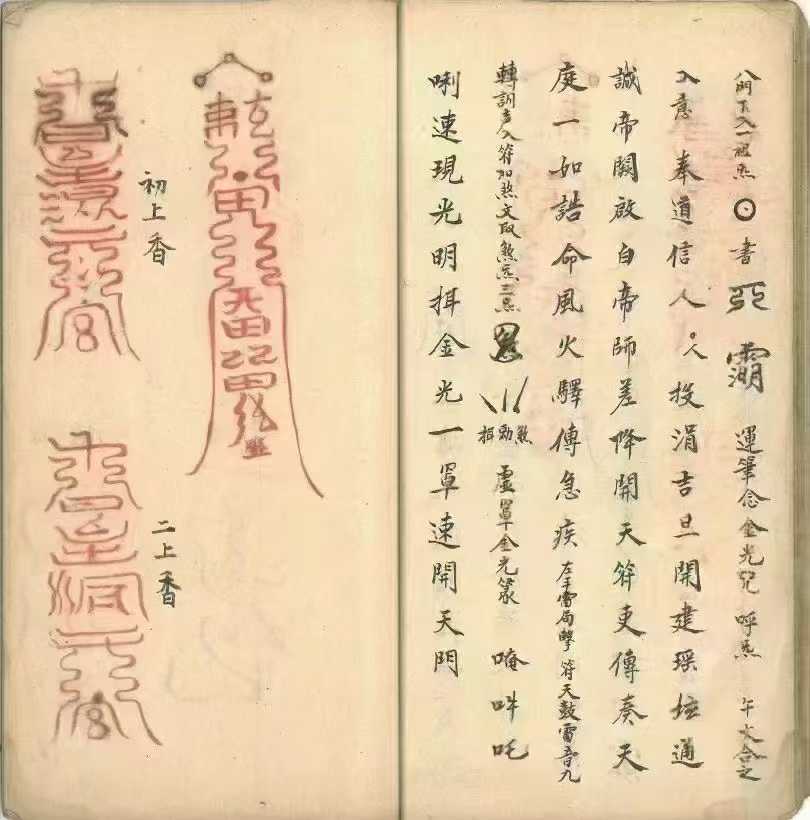 八門下入一祖炁 書 運筆念金光咒 呼炁 午文合之
入意 奉道信人 人投涓吉旦開建瑶壇通
誠帝闕啟白帝師差降開天符吏傳奏天
庭一如誥命風火驛傳急疾 左手雷局擊符天鼓雷音九
轉調聲入符加煞文取煞炁三点 煞勅揖 虛罩金光篆 唵吽吒
唎速現光明揖金光一罩速開天門
初上香
二上香